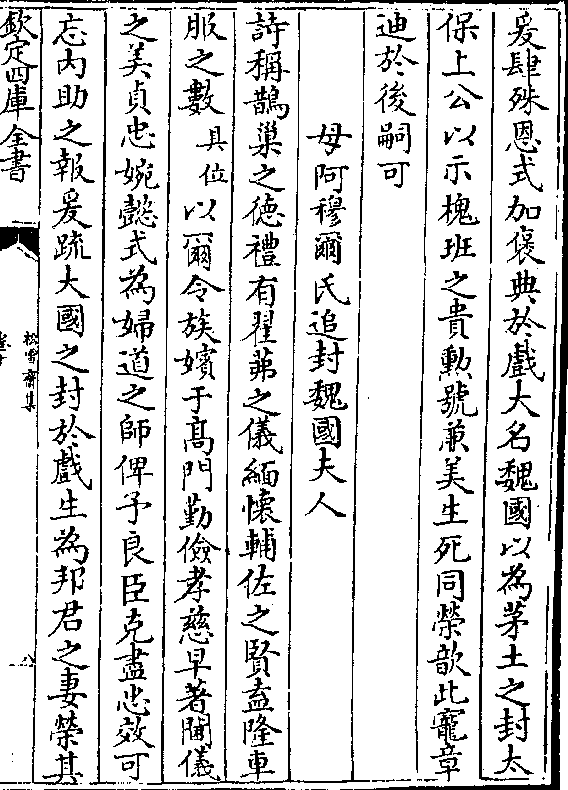 爰肆殊恩式加褒典於戲大名魏國以為茅土之封太
保上公以示槐班之貴勲號兼美生死同榮歆此寵章
迪於後嗣可
母阿穆爾氏追封魏國夫人
詩稱鵲巢之德禮有翟茀之儀緬懷輔佐之賢盍隆車
服之數具位以爾令族嬪于髙門勤儉孝慈早著閫儀
之美貞忠婉懿式為婦道之師俾予良臣克盡忠效可
忘内助之報爰疏大國之封於戲生為邦君之妻榮其
欽定四庫全書
松雪齋集